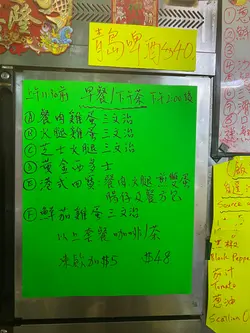 青島啤酒$40
上午11:00前 早餐/下午茶 下午2:00後
Ⓐ 餐肉雞蛋三文治
Ⓑ 火腿雞蛋三文治
Ⓒ 芝士火腿三文治
Ⓓ 黃金西多士
Ⓔ 港式四寶 餐肉 火腿 煎雙蛋
腸仔 及餐包
Ⓕ 鮮茄雞蛋三文治
以上套餐咖啡/茶
凍飲加$5 $48
黑椒
Black Pepper
茄汁
Tomato
蔥油
Scallion